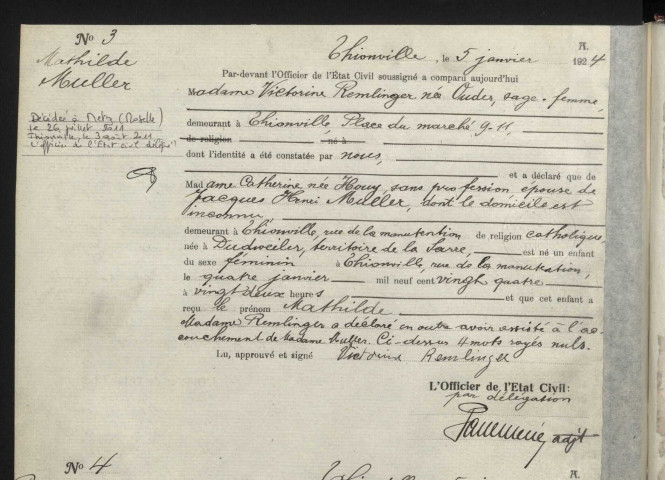 No 3
Mathilde
Muller
Décédée à Metz (Moselle)
le 26 juillet 2011
le 3 août 2011
l'officier de l'Etat civil délégué
Thionville, le 5 janvier 1924
A.
Par-devant l'Officier de l'État Civil soussigné a comparu aujourd'hui
Madame Victorine Remlinger née Ouder, sage-femme,
demeurant à Thionville, Place du marché 9-11,
de religion né à
dont l'identité a été constatée par nous,
et a déclaré que de
Madame Catherine née Houy, sans profession, épouse de
Jacques Henri Muller, dont le domicile est
inconnu,
demeurant à Thionville, rue de la manutention de religion catholique,
née à Dudweiler, territoire de la Sarre, est né un enfant
du sexe féminin à Thionville, rue de la manutention,
le quatre janvier mil neuf cent vingt quatre
à vingt deux heures et que cet enfant a
reçu le prénom Mathilde.
Madame Remlinger a déclaré en outre avoir assisté à l'ac-
couchement de Madame Muller. Ci-dessus 4 mots rayés nuls.
Lu, approuvé et signé Victorine Remlinger
L'Officier de l'Etat Civil:
par délégation
adjt
No 4
A.